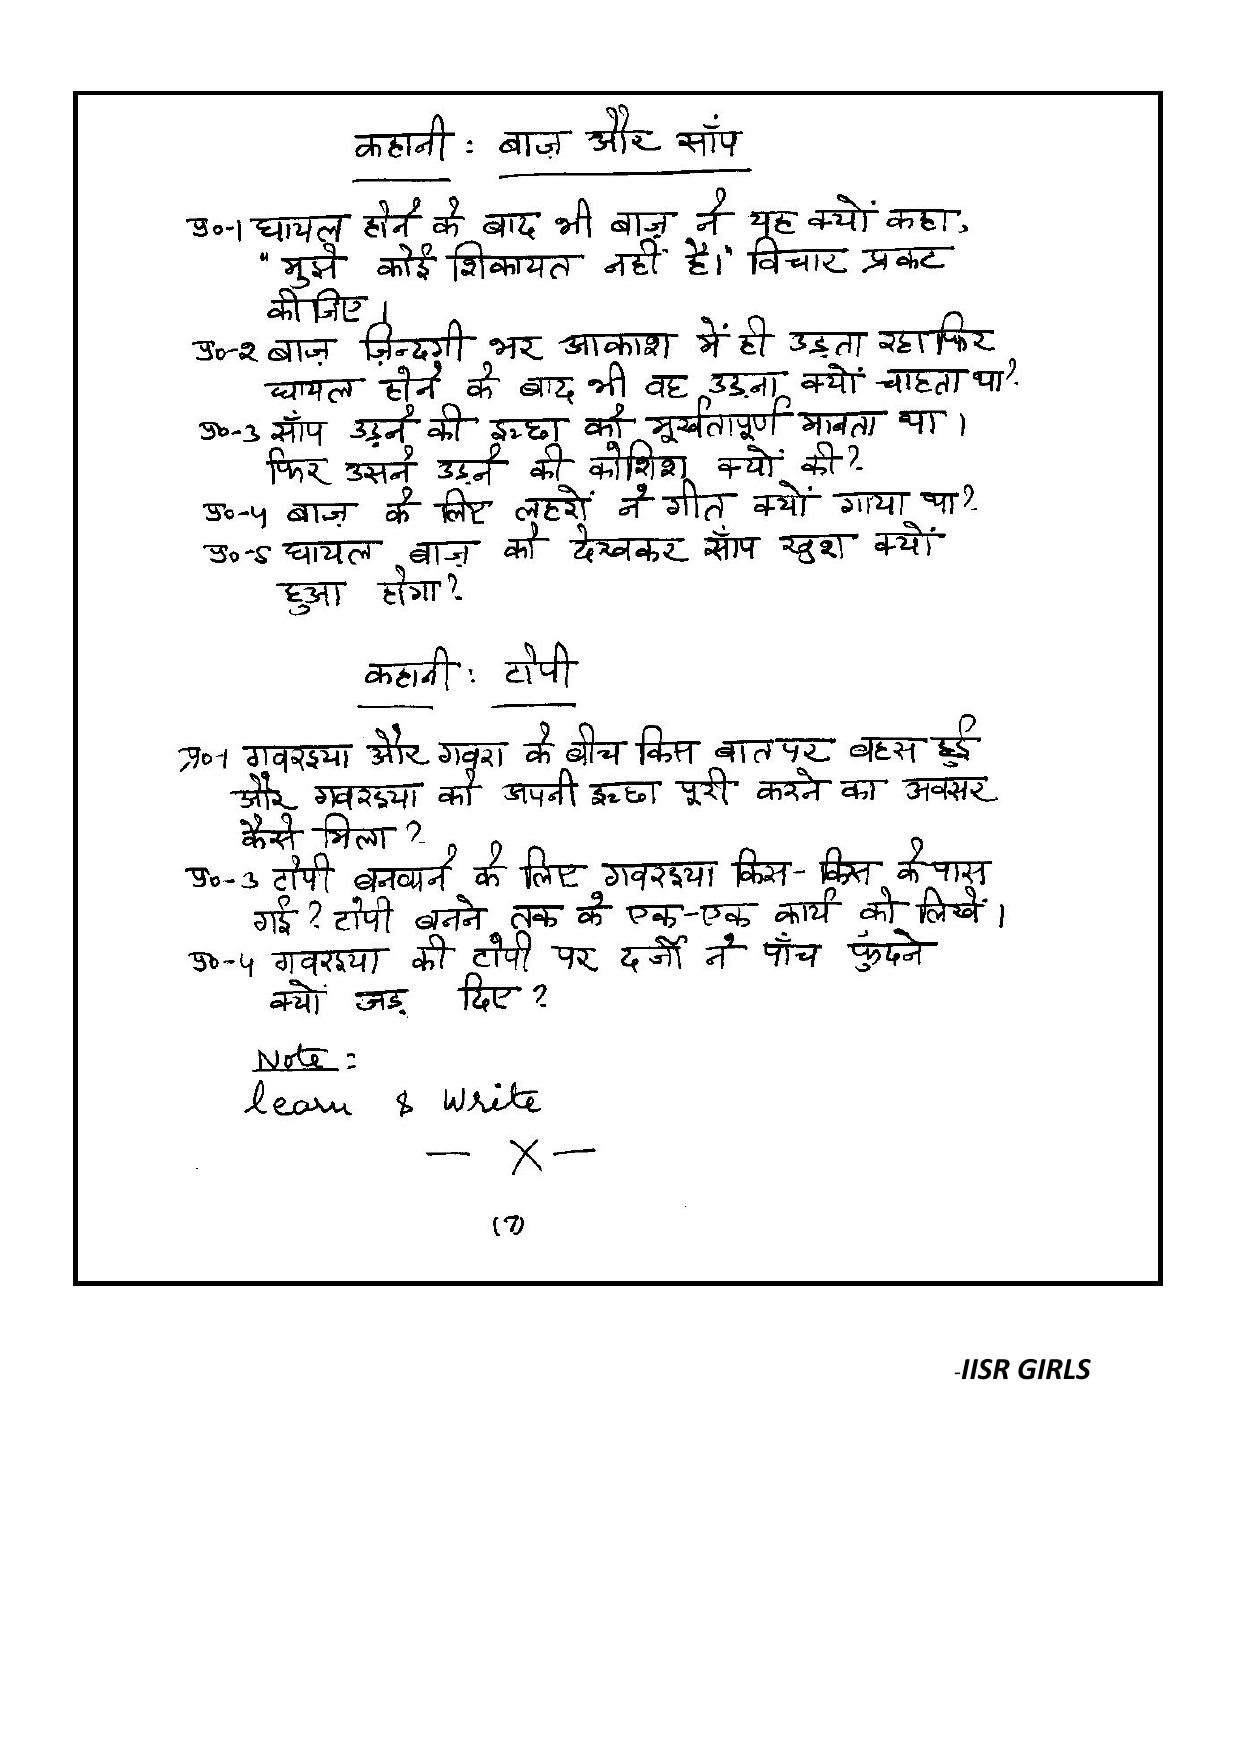 कहानी : बाज़ और साँप
प्र०-1 घायल होने के बाद भी बाज़ ने यह क्यों कहा,
"मुझे कोई शिकायत नहीं है।" विचार प्रकट
कीजिए।
प्र०-2 बाज़ ज़िन्दगी भर आकाश में ही उड़ता रहा फिर
घायल होने के बाद भी वह उड़ना क्यों चाहता था?
प्र०-3 साँप उड़ने की इच्छा को मूर्खतापूर्ण मानता था।
फिर उसने उड़ने की कोशिश क्यों की?
प्र०-4 बाज़ के लिए लहरों ने गीत क्यों गाया था?
प्र०-5 घायल बाज़ को देखकर साँप खुश क्यों
हुआ होगा?
कहानी : टोपी
प्र०-1 गवरइया और गवरा के बीच किस बात पर बहस हुई
और गवरइया को अपनी इच्छा पूरी करने का अवसर
कैसे मिला?
प्र०-3 टोपी बनवाने के लिए गवरइया किस-किस के पास
गई? टोपी बनने तक के एक-एक कार्य को लिखें।
प्र०-4 गवरइया की टोपी पर दर्जी ने पाँच फुंदने
क्यों जड़ दिए?
Note :
learn & write
— X —
(7)
-IISR GIRLS